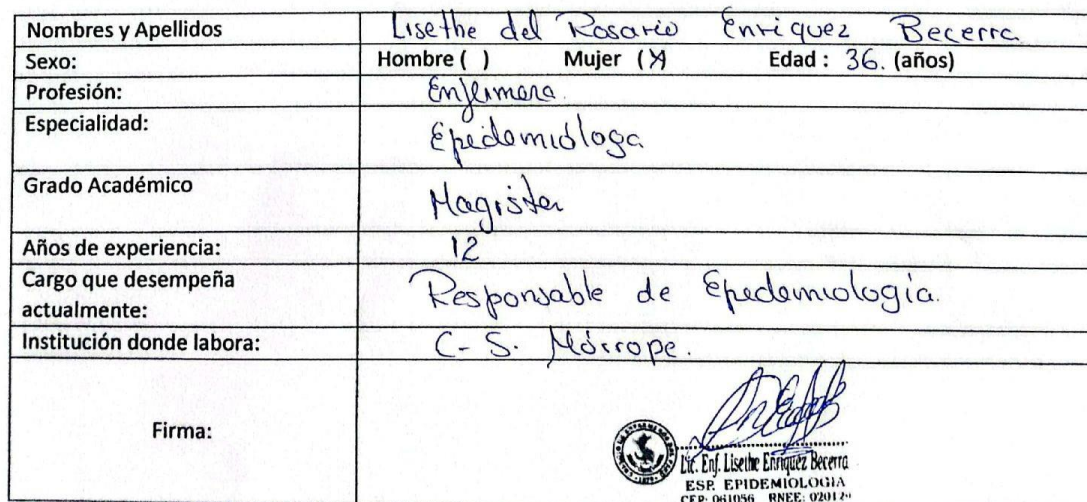 Nombres y Apellidos Lisethe del Rosario Enriquez Becerra
Sexo: Hombre ( ) Mujer (X) Edad : 36. (años)
Profesión: Enfermera.
Especialidad: Epidemióloga
Grado Académico Magister
Años de experiencia: 12
Cargo que desempeña
actualmente: Responsable de Epidemiología.
Institución donde labora: C-S. Mórrope.
Firma:
Lic. Enf. Lisethe Enriquez Becerra
ESP. EPIDEMIOLOGIA
CEP: 061056 RNEE: